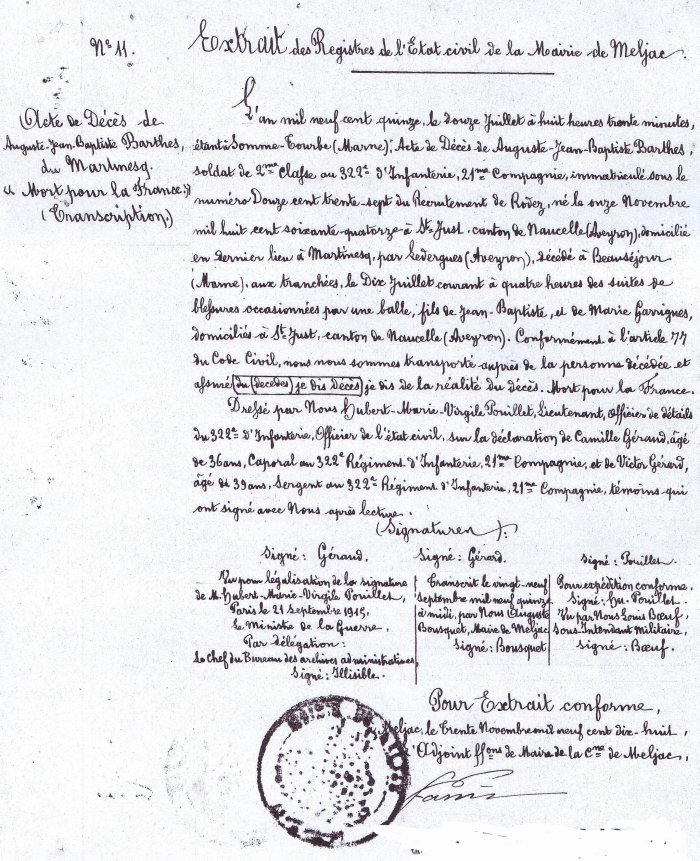 N° 11.
Extrait des Registres de l'Etat civil de la Mairie de Meljac.
Acte de Décès de
Auguste-Jean-Baptiste Barthes,
du Martinesq.
"Mort pour la France."
(Transcription)
L'an mil neuf cent quinze, le douze Juillet à huit heures trente minutes,
étant à Somme-Tourbe (Marne); Acte de Décès de Auguste-Jean-Baptiste Barthes,
soldat de 2me Classe au 322e d'Infanterie, 21me Compagnie, immatriculé sous le
numéro Douze cent trente-sept du Recrutement de Rodez, né le onze Novembre
mil huit cent soixante-quatorze à St Just. canton de Naucelle (Aveyron), domicilié
en dernier lieu à Martinesq, par Ledergues (Aveyron), décédé à Beauséjour
(Marne), aux tranchées, le Dix Juillet courant à quatre heures des suites de
blessures occasionnées par une balle, fils de Jean-Baptiste, et de Marie Garrigues,
domiciliés à St Just, canton de Naucelle (Aveyron). Conformément à l'article 77
du Code Civil, nous nous sommes transporté auprès de la personne décédée et
assuré (du (décedes) je dis Décès) je dis de la réalité du décès. Mort pour la France.
Dressé par Nous Hubert-Marie-Virgile Pouillet, Lieutenant, Officier de détails
du 322e d'Infanterie, Officier de l'état civil, sur la déclaration de Camille Géraud, âgé
de 36 ans, Caporal au 322e Régiment d'Infanterie, 21me Compagnie, et de Victor Gérard,
âgé de 39 ans, Sergent au 322e Régiment d'Infanterie, 21me Compagnie, témoins qui
ont signé avec Nous après lecture.
(Signatures):
Signé: Géraud. Signé: Gérard. Signé: Pouillet.
Vu pour légalisation de la signature
de M. Hubert-Marie-Virgile Pouillet,
Paris le 21 Septembre 1915,
Le Ministre de la Guerre,
Par délégation:
Le Chef du Bureau des archives administratives,
Signé: Illisible.
Transcrit le vingt-neuf
Septembre mil neuf quinze
à midi, par Nous Auguste
Bousquet, Maire de Meljac
Signé: Bousquet
Pour expédition conforme.
Signé: Hu. Pouillet.
Vu par Nous Louis Bœuf,
Sous-Intendant Militaire,
Signé: Bœuf.
Pour Extrait conforme,
Meljac, le Trente Novembre mil neuf cent dix-huit
L'Adjoint ffons de Maire de la Cne de Meljac,